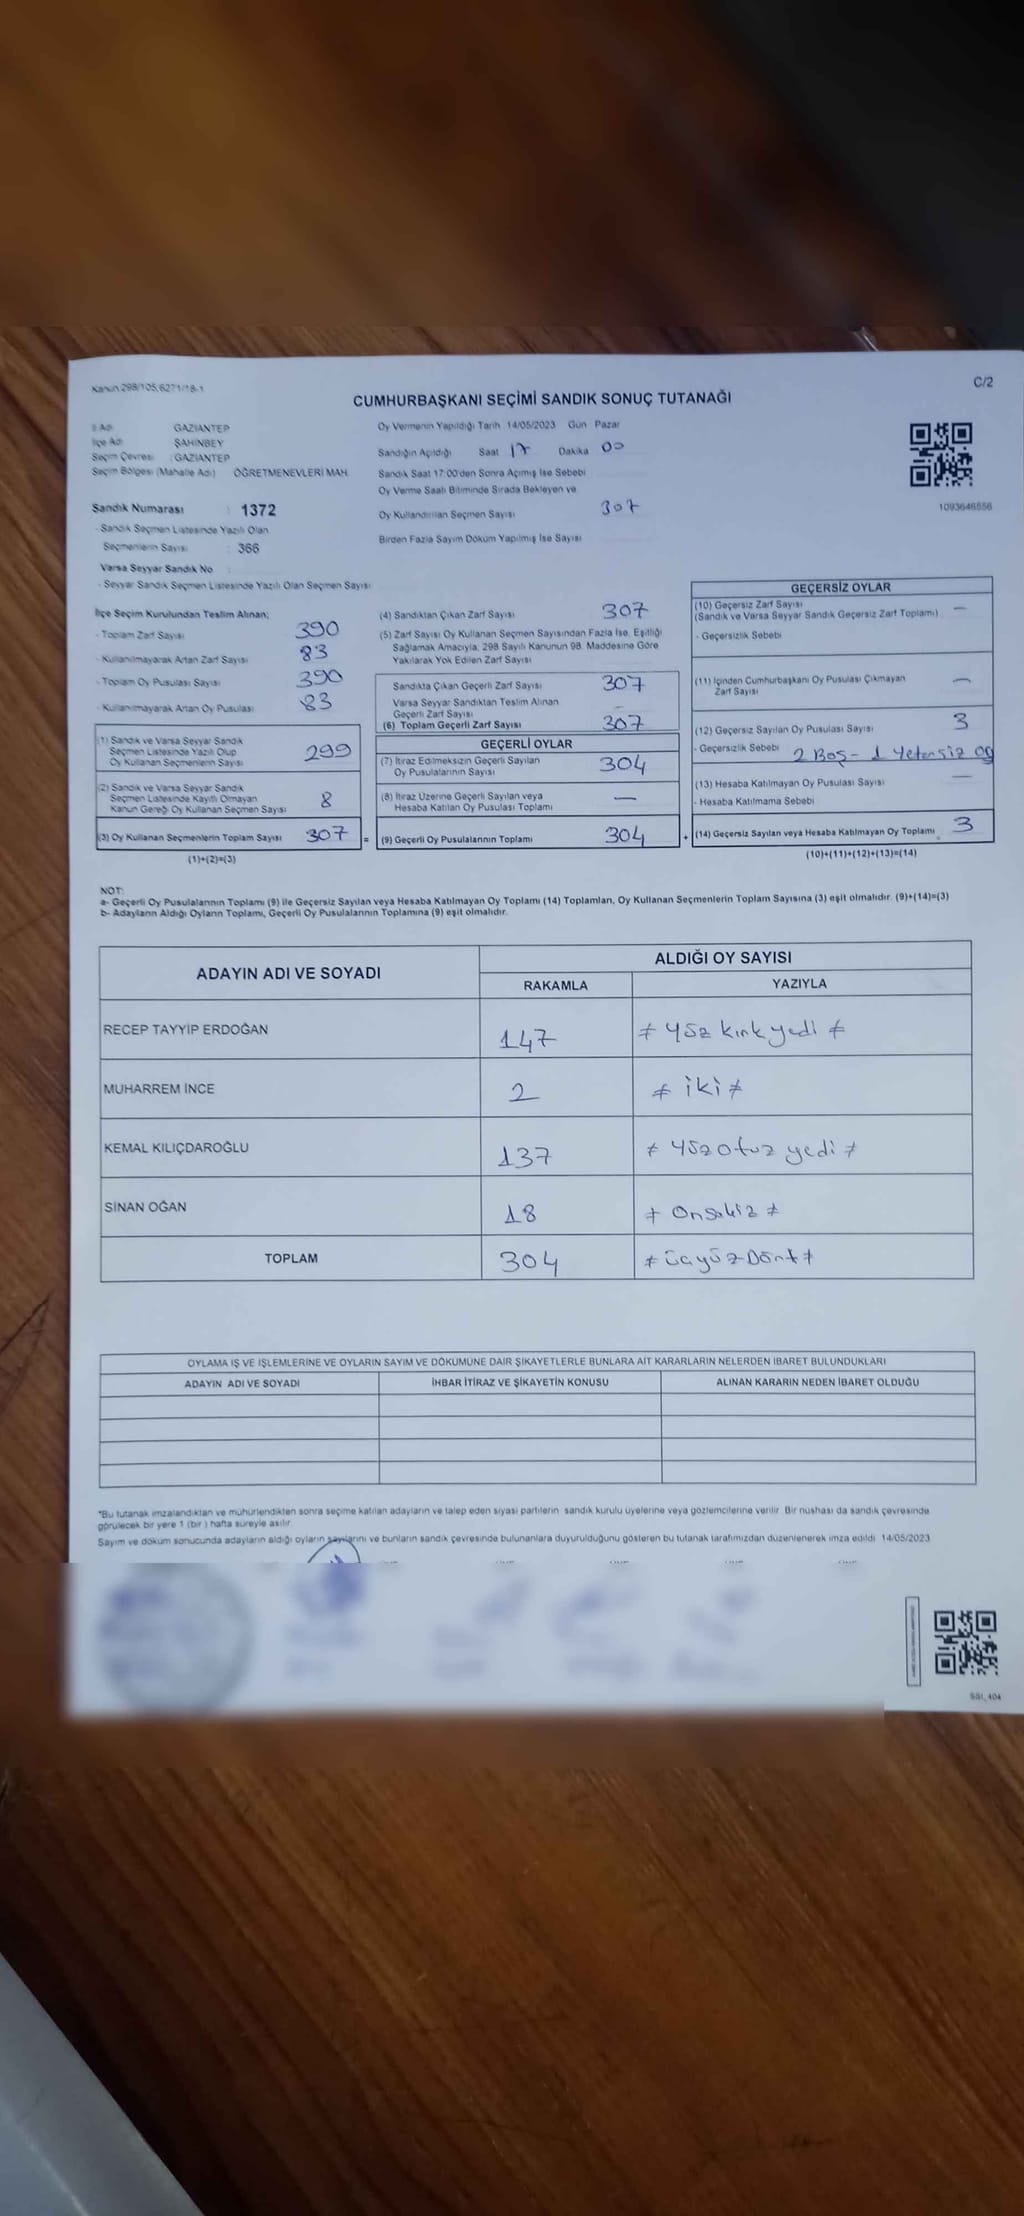 Kanun 298/105,6271/18-1
C/2
CUMHURBAŞKANI SEÇİMİ SANDIK SONUÇ TUTANAĞI
İl Adı GAZİANTEP
İlçe Adı ŞAHİNBEY
Seçim Çevresi : GAZİANTEP
Seçim Bölgesi (Mahalle Adı) ÖĞRETMENEVLERİ MAH.
Sandık Numarası : 1372
- Sandık Seçmen Listesinde Yazılı Olan
Seçmenlerin Sayısı : 366
Varsa Seyyar Sandık No :
- Seyyar Sandık Seçmen Listesinde Yazılı Olan Seçmen Sayısı
Oy Vermenin Yapıldığı Tarih 14/05/2023 Gün Pazar
Sandığın Açıldığı Saat 17 Dakika 00
Sandık Saat 17:00'den Sonra Açılmış İse Sebebi
Oy Verme Saati Bitiminde Sırada Bekleyen ve
Oy Kullandırılan Seçmen Sayısı 307
Birden Fazla Sayım Döküm Yapılmış İse Sayısı
1093646556
İlçe Seçim Kurulundan Teslim Alınan;
- Toplam Zarf Sayısı 390
- Kullanılmayarak Artan Zarf Sayısı 83
- Toplam Oy Pusulası Sayısı 390
- Kullanılmayarak Artan Oy Pusulası 83
(1) Sandık ve Varsa Seyyar Sandık
Seçmen Listesinde Yazılı Olup
Oy Kullanan Seçmenlerin Sayısı 299
(2) Sandık ve Varsa Seyyar Sandık
Seçmen Listesinde Kayıtlı Olmayan
Kanun Gereği Oy Kullanan Seçmen Sayısı 8
(3) Oy Kullanan Seçmenlerin Toplam Sayısı 307 =
(1)+(2)=(3)
(4) Sandıktan Çıkan Zarf Sayısı 307
(5) Zarf Sayısı Oy Kullanan Seçmen Sayısından Fazla İse, Eşitliği
Sağlamak Amacıyla, 298 Sayılı Kanunun 98. Maddesine Göre
Yakılarak Yok Edilen Zarf Sayısı
Sandıkta Çıkan Geçerli Zarf Sayısı 307
Varsa Seyyar Sandıktan Teslim Alınan
Geçerli Zarf Sayısı -
(6) Toplam Geçerli Zarf Sayısı 307
GEÇERLİ OYLAR
(7) İtiraz Edilmeksizin Geçerli Sayılan
Oy Pusulalarının Sayısı 304
(8) İtiraz Üzerine Geçerli Sayılan veya
Hesaba Katılan Oy Pusulası Toplamı —
(9) Geçerli Oy Pusulalarının Toplamı 304 +
GEÇERSİZ OYLAR
(10) Geçersiz Zarf Sayısı
(Sandık ve Varsa Seyyar Sandık Geçersiz Zarf Toplamı) —
- Geçersizlik Sebebi
(11) İçinden Cumhurbaşkanı Oy Pusulası Çıkmayan
Zarf Sayısı —
(12) Geçersiz Sayılan Oy Pusulası Sayısı 3
- Geçersizlik Sebebi 2 Boş - 1 Yetersiz oy
(13) Hesaba Katılmayan Oy Pusulası Sayısı —
- Hesaba Katılmama Sebebi
(14) Geçersiz Sayılan veya Hesaba Katılmayan Oy Toplamı 3
(10)+(11)+(12)+(13)=(14)
NOT:
a- Geçerli Oy Pusulalarının Toplamı (9) ile Geçersiz Sayılan veya Hesaba Katılmayan Oy Toplamı (14) Toplamları, Oy Kullanan Seçmenlerin Toplam Sayısına (3) eşit olmalıdır. (9)+(14)=(3)
b- Adayların Aldığı Oyların Toplamı, Geçerli Oy Pusulalarının Toplamına (9) eşit olmalıdır.
ADAYIN ADI VE SOYADI ALDIĞI OY SAYISI
RAKAMLA YAZIYLA
RECEP TAYYİP ERDOĞAN 147 ≠ Yüz kırk yedi ≠
MUHARREM İNCE 2 ≠ iki ≠
KEMAL KILIÇDAROĞLU 137 ≠ Yüz otuz yedi ≠
SİNAN OĞAN 18 ≠ Onsekiz ≠
TOPLAM 304 ≠ üçyüz Dört ≠
OYLAMA İŞ VE İŞLEMLERİNE VE OYLARIN SAYIM VE DÖKÜMÜNE DAİR ŞİKAYETLERLE BUNLARA AİT KARARLARIN NELERDEN İBARET BULUNDUKLARI
ADAYIN ADI VE SOYADI İHBAR İTİRAZ VE ŞİKAYETİN KONUSU ALINAN KARARIN NEDEN İBARET OLDUĞU
*Bu tutanak imzalandıktan ve mühürlendikten sonra seçime katılan adayların ve talep eden siyasi partilerin sandık kurulu üyelerine veya gözlemcilerine verilir. Bir nüshası da sandık çevresinde
görülecek bir yere 1 (bir) hafta süreyle asılır.
Sayım ve döküm sonucunda adayların aldığı oyların sayılarını ve bunların sandık çevresinde bulunanlara duyurulduğunu gösteren bu tutanak tarafımızdan düzenlenerek imza edildi. 14/05/2023